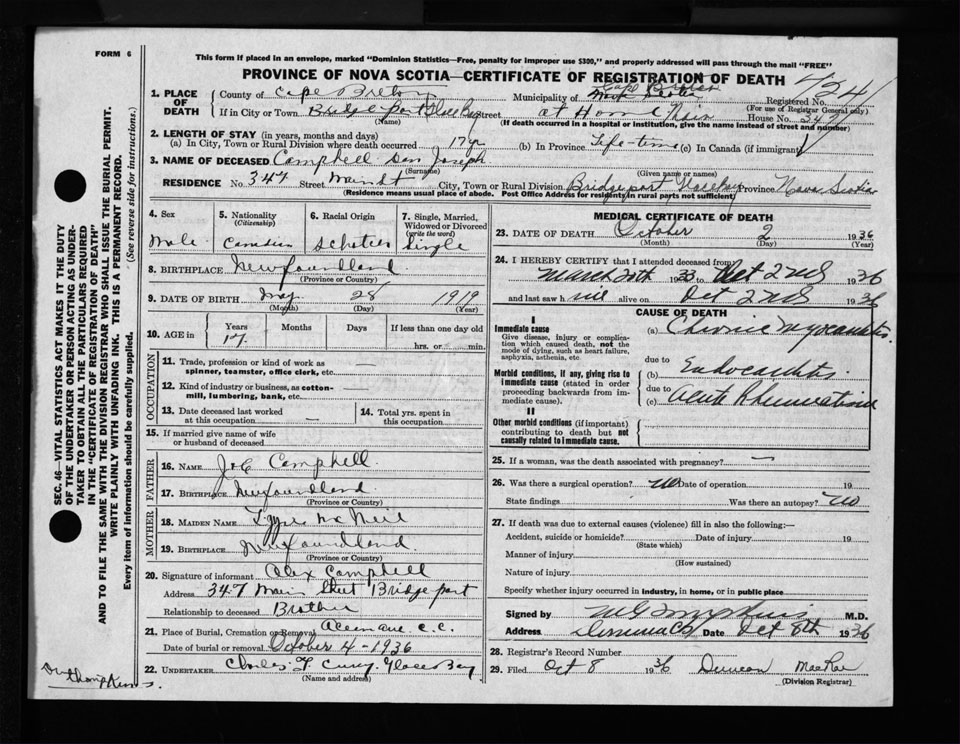 FORM 6
This form if placed in an envelope, marked "Dominion Statistics—Free, penalty for improper use $300," and properly addressed will pass through the mail "FREE"
PROVINCE OF NOVA SCOTIA—CERTIFICATE OF REGISTRATION OF DEATH
1. PLACE OF DEATH
County of Cape Breton Municipality of Cape Breton Registered No. 424
(For use of Registrar General only)
If in City or Town Bridgeport Glace Bay Street at Home Main House No. 347
(Name) (If death occurred in a hospital or institution, give the name instead of street and number)
2. LENGTH OF STAY (in years, months and days)
(a) In City, Town or Rural Division where death occurred 17 yr (b) In Province Life-time (c) In Canada (if immigrant)
3. NAME OF DECEASED Campbell Dan Joseph
(Surname) (Given name or names)
RESIDENCE No. 347 Street Main St City, Town or Rural Division Bridgeport Glace Bay Province Nova Scotia
(Residence means usual place of abode. Post Office Address for residents in rural parts not sufficient)
4. Sex Male
5. Nationality (Citizenship) Canadian
6. Racial Origin Scotch
7. Single, Married, Widowed or Divorced (write the word) Single
8. BIRTHPLACE Newfoundland
(Province or Country)
9. DATE OF BIRTH May 28 1919
(Month) (Day) (Year)
10. AGE in Years 17 Months Days If less than one day old
hrs. or min.
OCCUPATION
11. Trade, profession or kind of work as spinner, teamster, office clerk, etc. —
12. Kind of industry or business, as cotton-mill, lumbering, bank, etc.
13. Date deceased last worked at this occupation —
14. Total yrs. spent in this occupation
15. If married give name of wife or husband of deceased
FATHER
16. Name Campbell
17. Birthplace Newfoundland
(Province or Country)
MOTHER
18. Maiden Name McNeil
19. Birthplace Newfoundland
(Province or Country)
20. Signature of informant Alex Campbell
Address 347 Main Street Bridgeport
Relationship to deceased Brother
21. Place of Burial, Cremation or Removal C.C.
Date of burial or removal October 4 - 1936
22. UNDERTAKER Charles F Curry, Glace Bay
(Name and address)
MEDICAL CERTIFICATE OF DEATH
23. DATE OF DEATH October 2 1936
(Month) (Day) (Year)
24. I HEREBY CERTIFY that I attended deceased from
March 1933 to Oct 2nd 1936
and last saw h alive on Oct 2nd 1936
CAUSE OF DEATH
I
Immediate cause
Give disease, injury or complication which caused death, not the mode of dying, such as heart failure, asphyxia, asthenia, etc.
(a) Chronic Myocarditis
due to
Morbid conditions, if any, giving rise to immediate cause (stated in order proceeding backwards from immediate cause).
(b) Endocarditis
due to
(c) Acute Rheumatism
II
Other morbid conditions (if important) contributing to death but not causally related to immediate cause.
25. If a woman, was the death associated with pregnancy? —
26. Was there a surgical operation? no Date of operation 19
State findings Was there an autopsy? no
27. If death was due to external causes (violence) fill in also the following:—
Accident, suicide or homicide? Date of injury 19
(State which)
Manner of injury
(How sustained)
Nature of injury
Specify whether injury occurred in industry, in home, or in public place
Signed by M.D.
Address Date Oct 8th 1936
28. Registrar's Record Number
29. Filed Oct 8 1936 Duncan MacRae
(Division Registrar)
SEC. 46—VITAL STATISTICS ACT MAKES IT THE DUTY
OF THE UNDERTAKER OR PERSON ACTING AS UNDER-
TAKER TO OBTAIN ALL THE PARTICULARS REQUIRED
IN THE "CERTIFICATE OF REGISTRATION OF DEATH"
AND TO FILE THE SAME WITH THE DIVISION REGISTRAR WHO SHALL ISSUE THE BURIAL PERMIT.
WRITE PLAINLY WITH UNFADING INK. THIS IS A PERMANENT RECORD.
Every item of information should be carefully supplied. (See reverse side for instructions.)